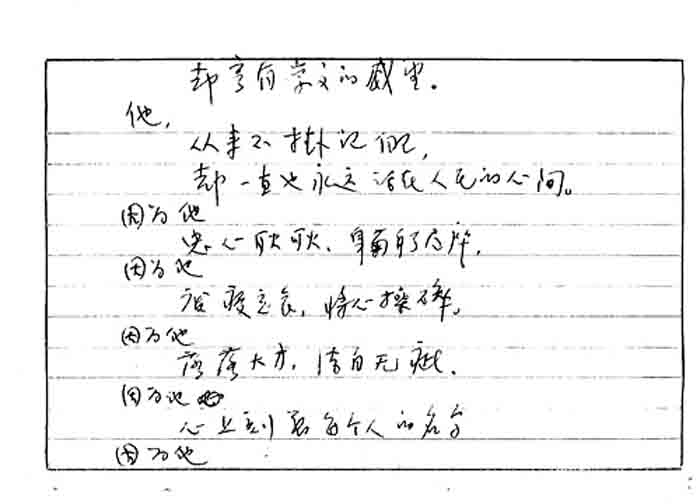 却享有崇高的威望。
他,
从来不挂记自己,
却一直也永远活在人民的心间。
因为他
忠心耿耿、鞠躬尽瘁,
因为他
废寝忘食,将心操碎。
因为他
落落大方,清白无疵.
因为他
心上刻着每个人的名字
因为他